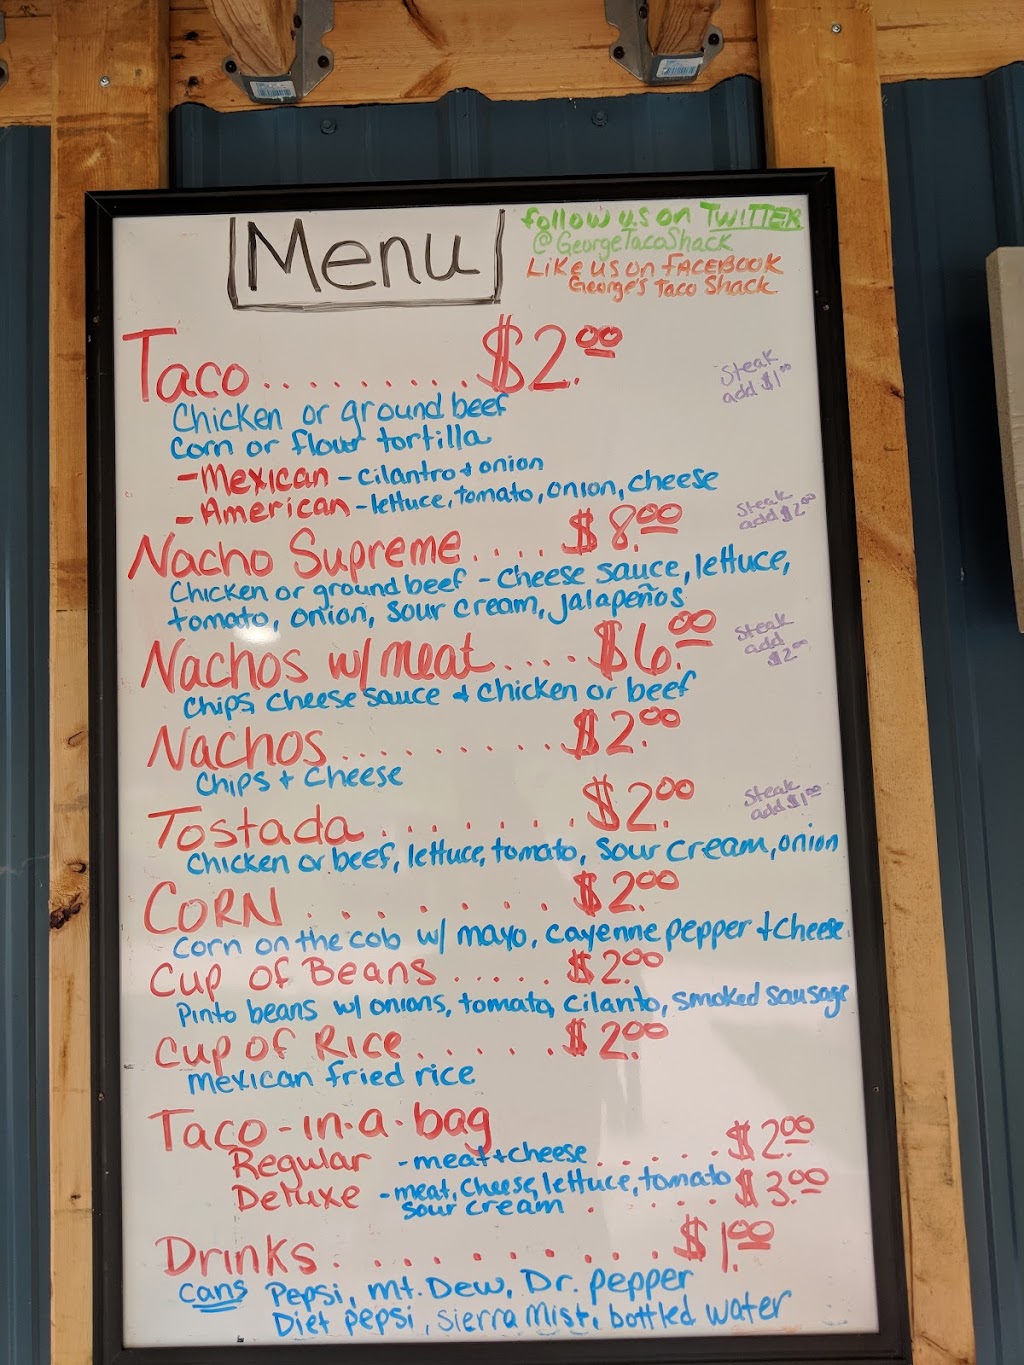 Menu
follow us on TWITTER
@GeorgeTacoShack
Like us on FACEBOOK
George's Taco Shack
Taco.........$2.00
Steak
add $1.00
Chicken or ground beef
Corn or flour tortilla
-Mexican - cilantro + onion
-American - lettuce, tomato, onion, cheese
Nacho Supreme....$8.00
Steak
add $2.00
Chicken or ground beef - cheese sauce, lettuce,
tomato, onion, sour cream, jalapeños
Nachos w/meat....$6.00
Steak
add
$2.00
Chips, cheese sauce + chicken or beef
Nachos.........$2.00
Chips + cheese
Tostada.......$2.00
Steak
add $1.00
Chicken or beef, lettuce, tomato, sour cream, onion
CORN........$2.00
Corn on the cob w/ mayo, cayenne pepper + cheese.
Cup of Beans.....$2.00
Pinto beans w/ onions, tomato, cilanto, smoked sausage
Cup of Rice......$2.00
mexican fried rice
Taco-in-a-bag
Regular - meat + cheese......$2.00
Deluxe - meat, cheese, lettuce, tomato $3.00
sour cream.....
Drinks..........$1.00
cans Pepsi, mt. Dew, Dr. pepper
Diet pepsi, sierra mist, bottled water